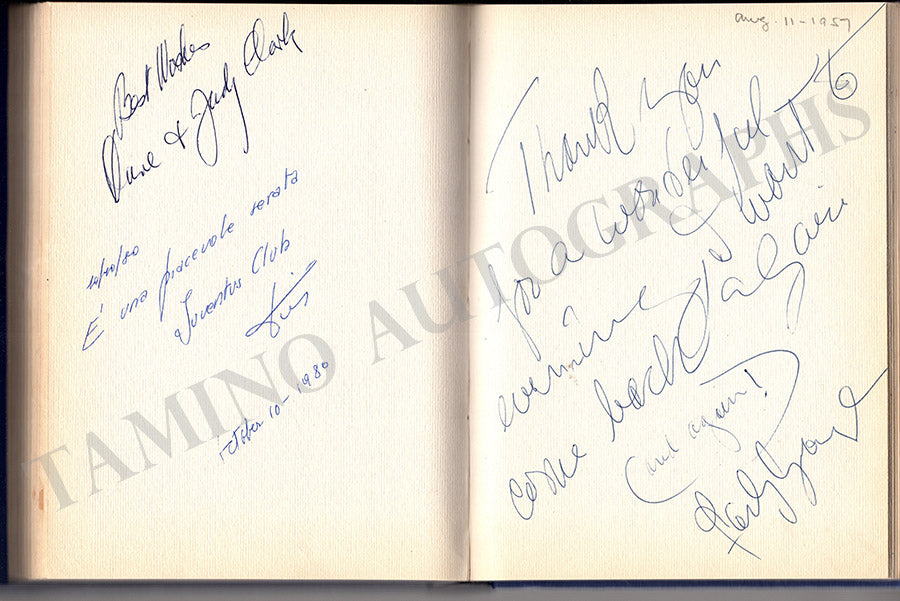 Best Wishes
& Judy Clark
10/10/80
È una piacevole serata
Juventus Club
October 10 - 1980
Aug. 11 - 1957
Thank you
for a wonderful
evening I want to
come back again
(and again!)
TAMINO AUTOGRAPHS